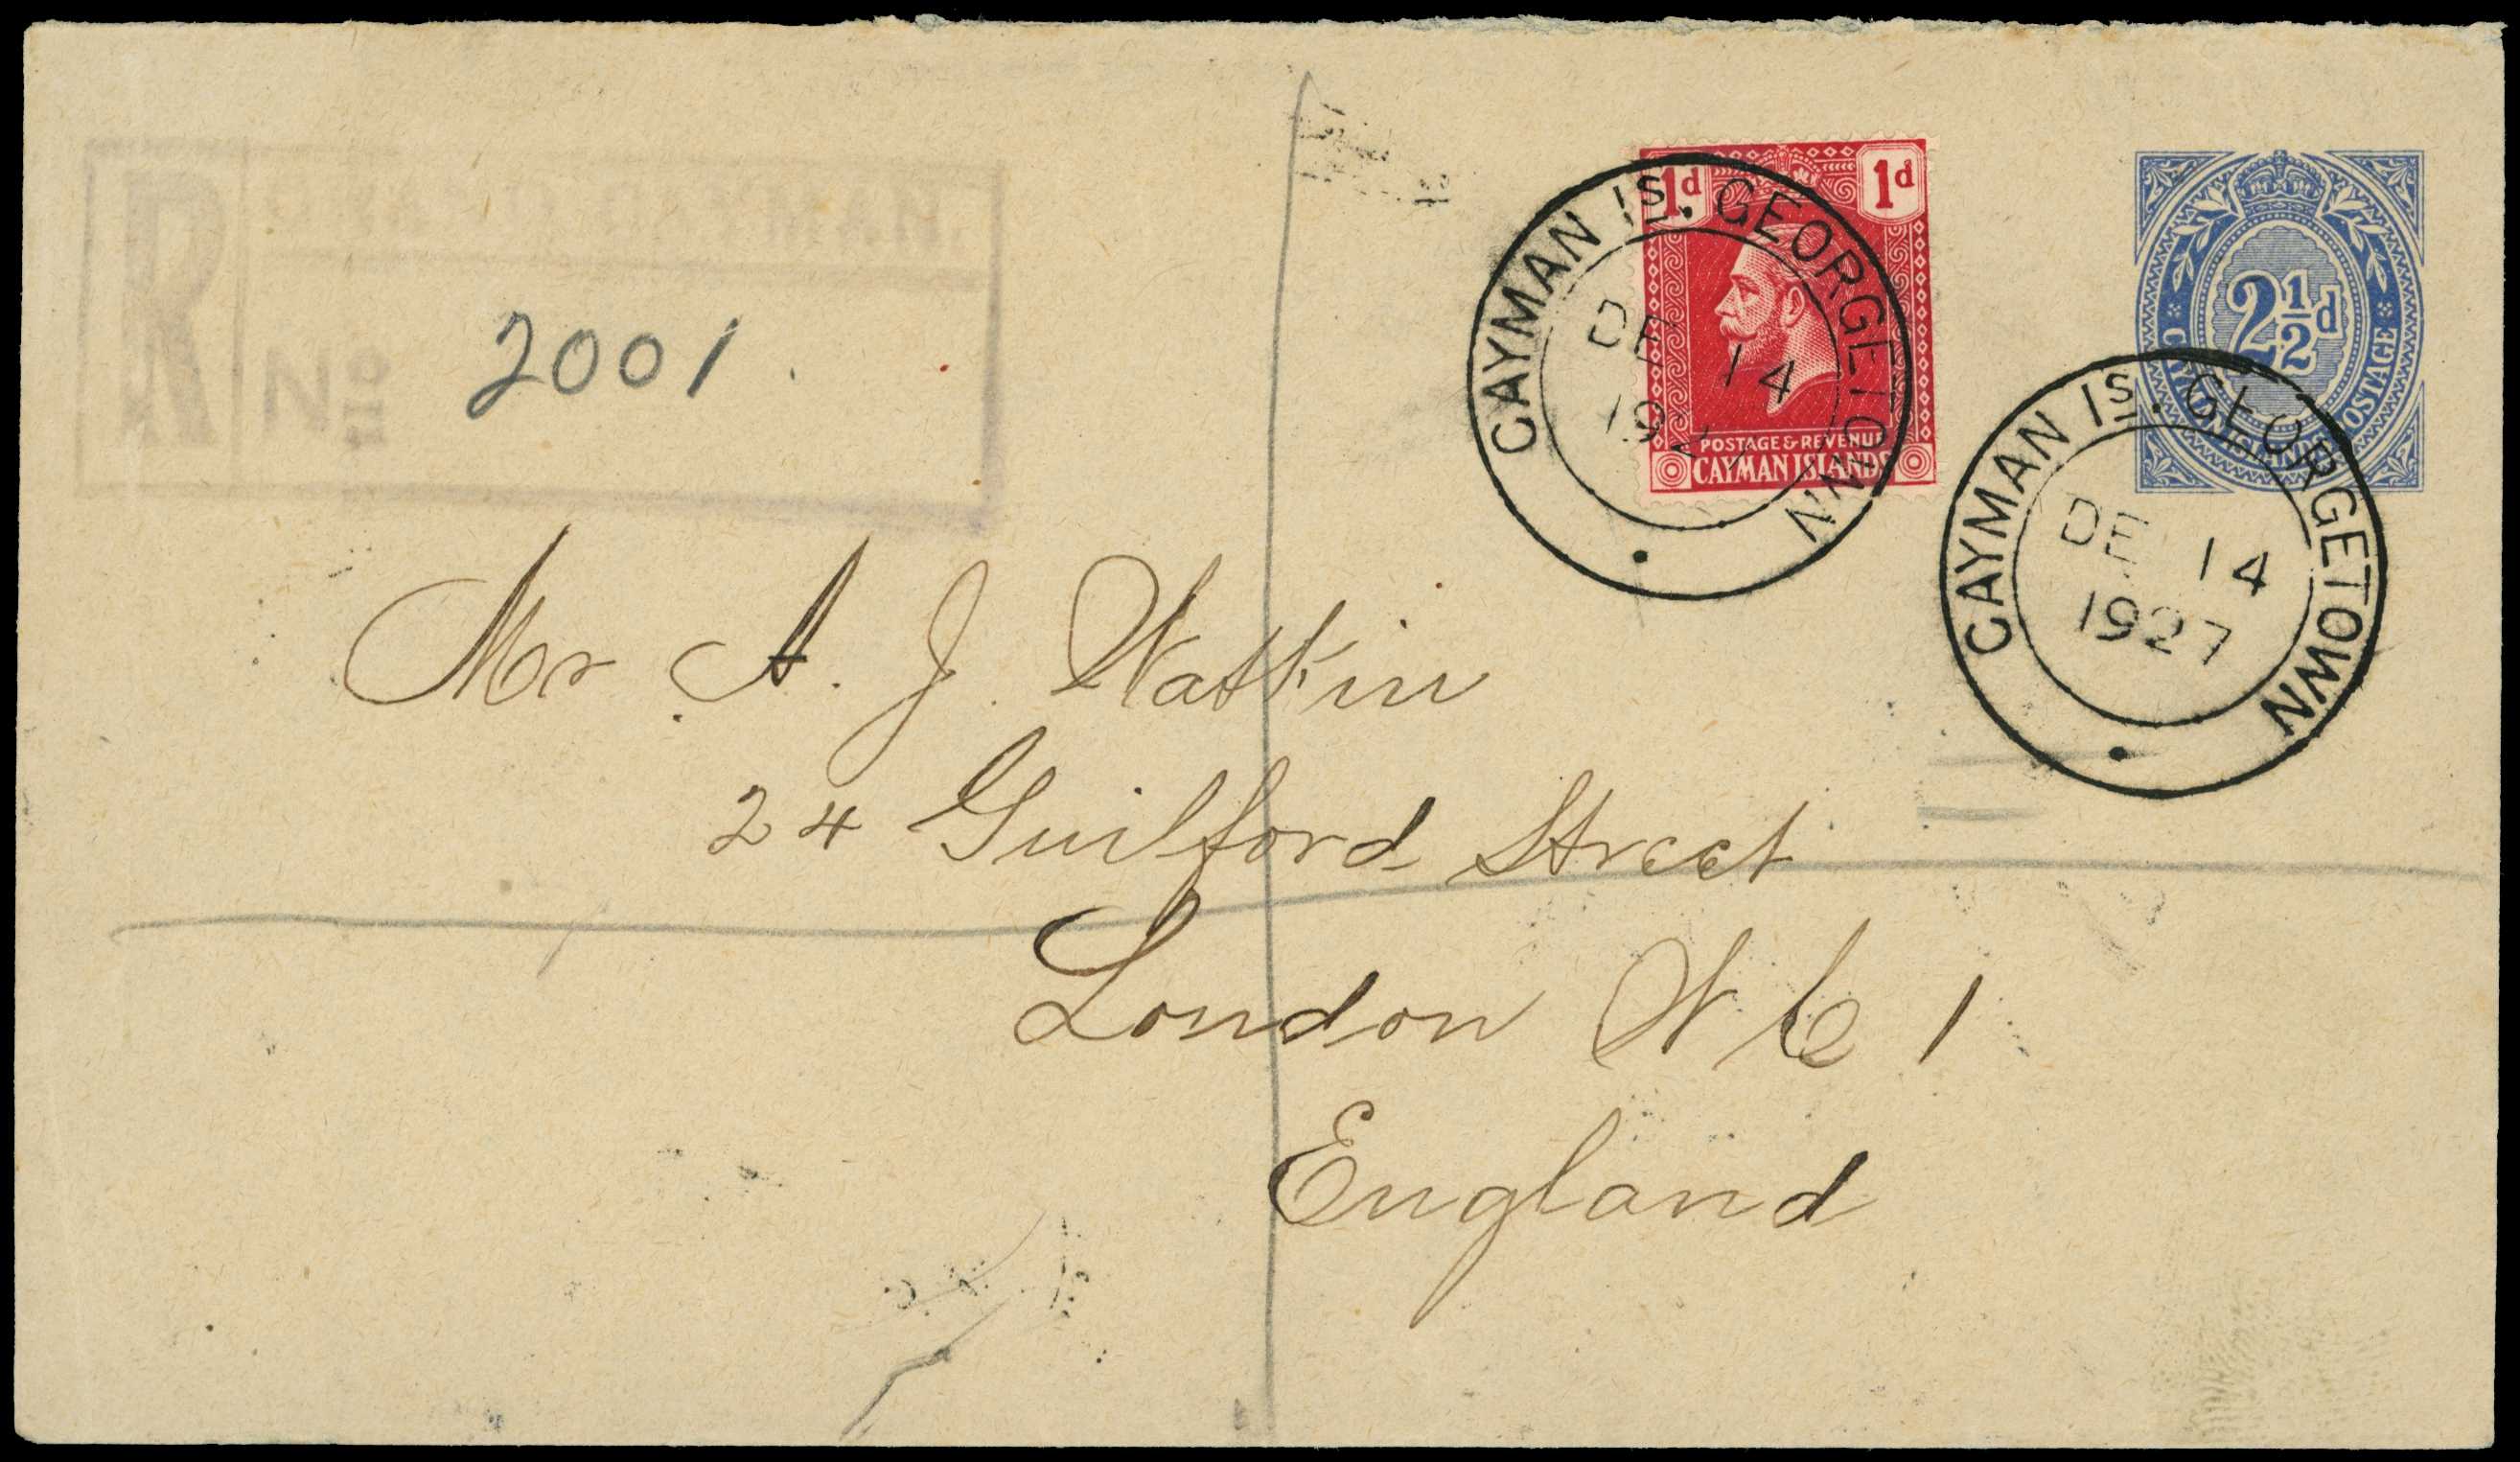 R
GRAND CAYMAN
No
2001.
1d 1d
POSTAGE & REVENUE
CAYMAN ISLANDS
CAYMAN Is. GEORGETOWN
DE 14
192
2½d
CAYMAN ISLANDS POSTAGE
CAYMAN Is. GEORGETOWN
DE 14
1927
Mr A. J. Watkin
24 Guilford Street
London W C 1
England